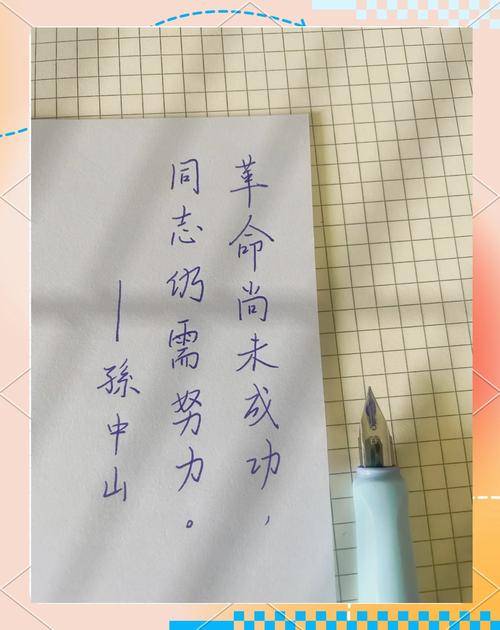 革命尚未成功，
同志仍需努力。
—孫中山